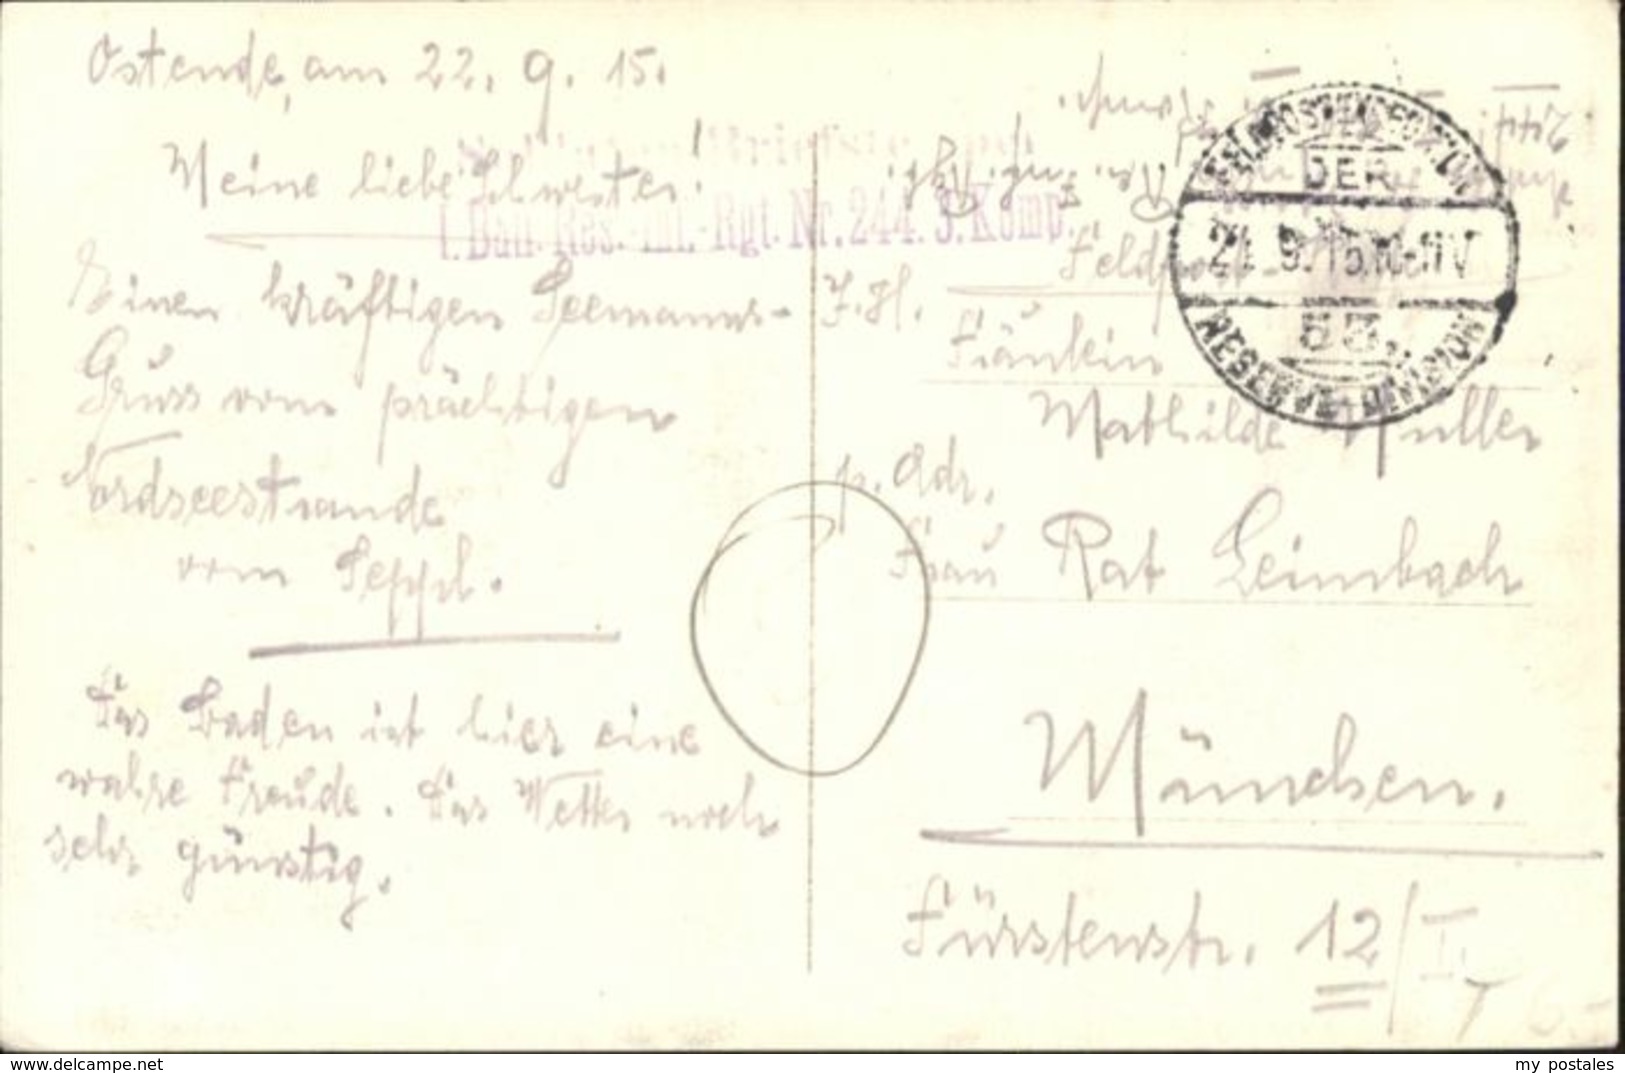 Ostende, am 22. 9. 15.
Meine liebe Schwester!
Einen kräftigen Seemanns-
Gruss vom prächtigen
Nordseestrande
vom Seppl.
Das Baden ist hier eine
wahre Freude. Das Wetter noch
sehr günstig.
I. Batl. Res.-Inf.-Rgt. Nr. 244. 3. Komp.
FELDPOSTEXPEDITION
DER
53.
RESERVE-DIVISION
Feldpost
I. H.
Fräulein
Mathilde Müller
p. Adr.
Frau Rat Leimbach
München.
Fürstenstr. 12/I.
my postales